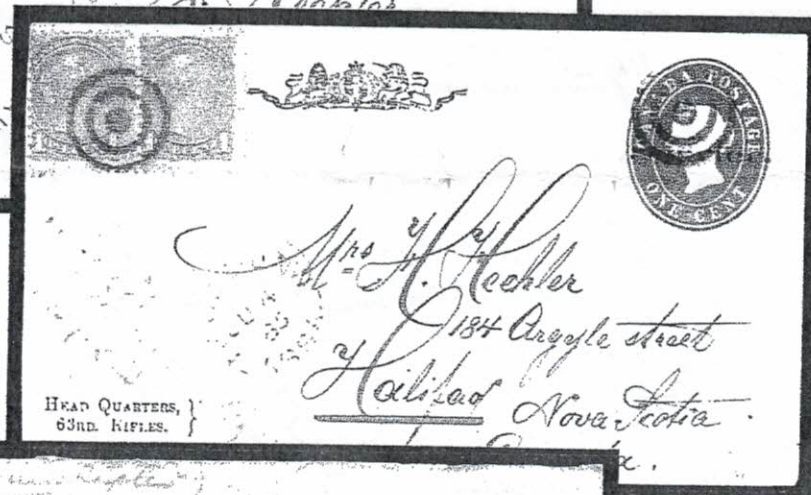 CANADA POSTAGE
ONE CENT
Mrs H. Hechler
184 Argyle street
Hailifad Nova Scotia
HEAD QUARTERS,
63RD. RIFLES.